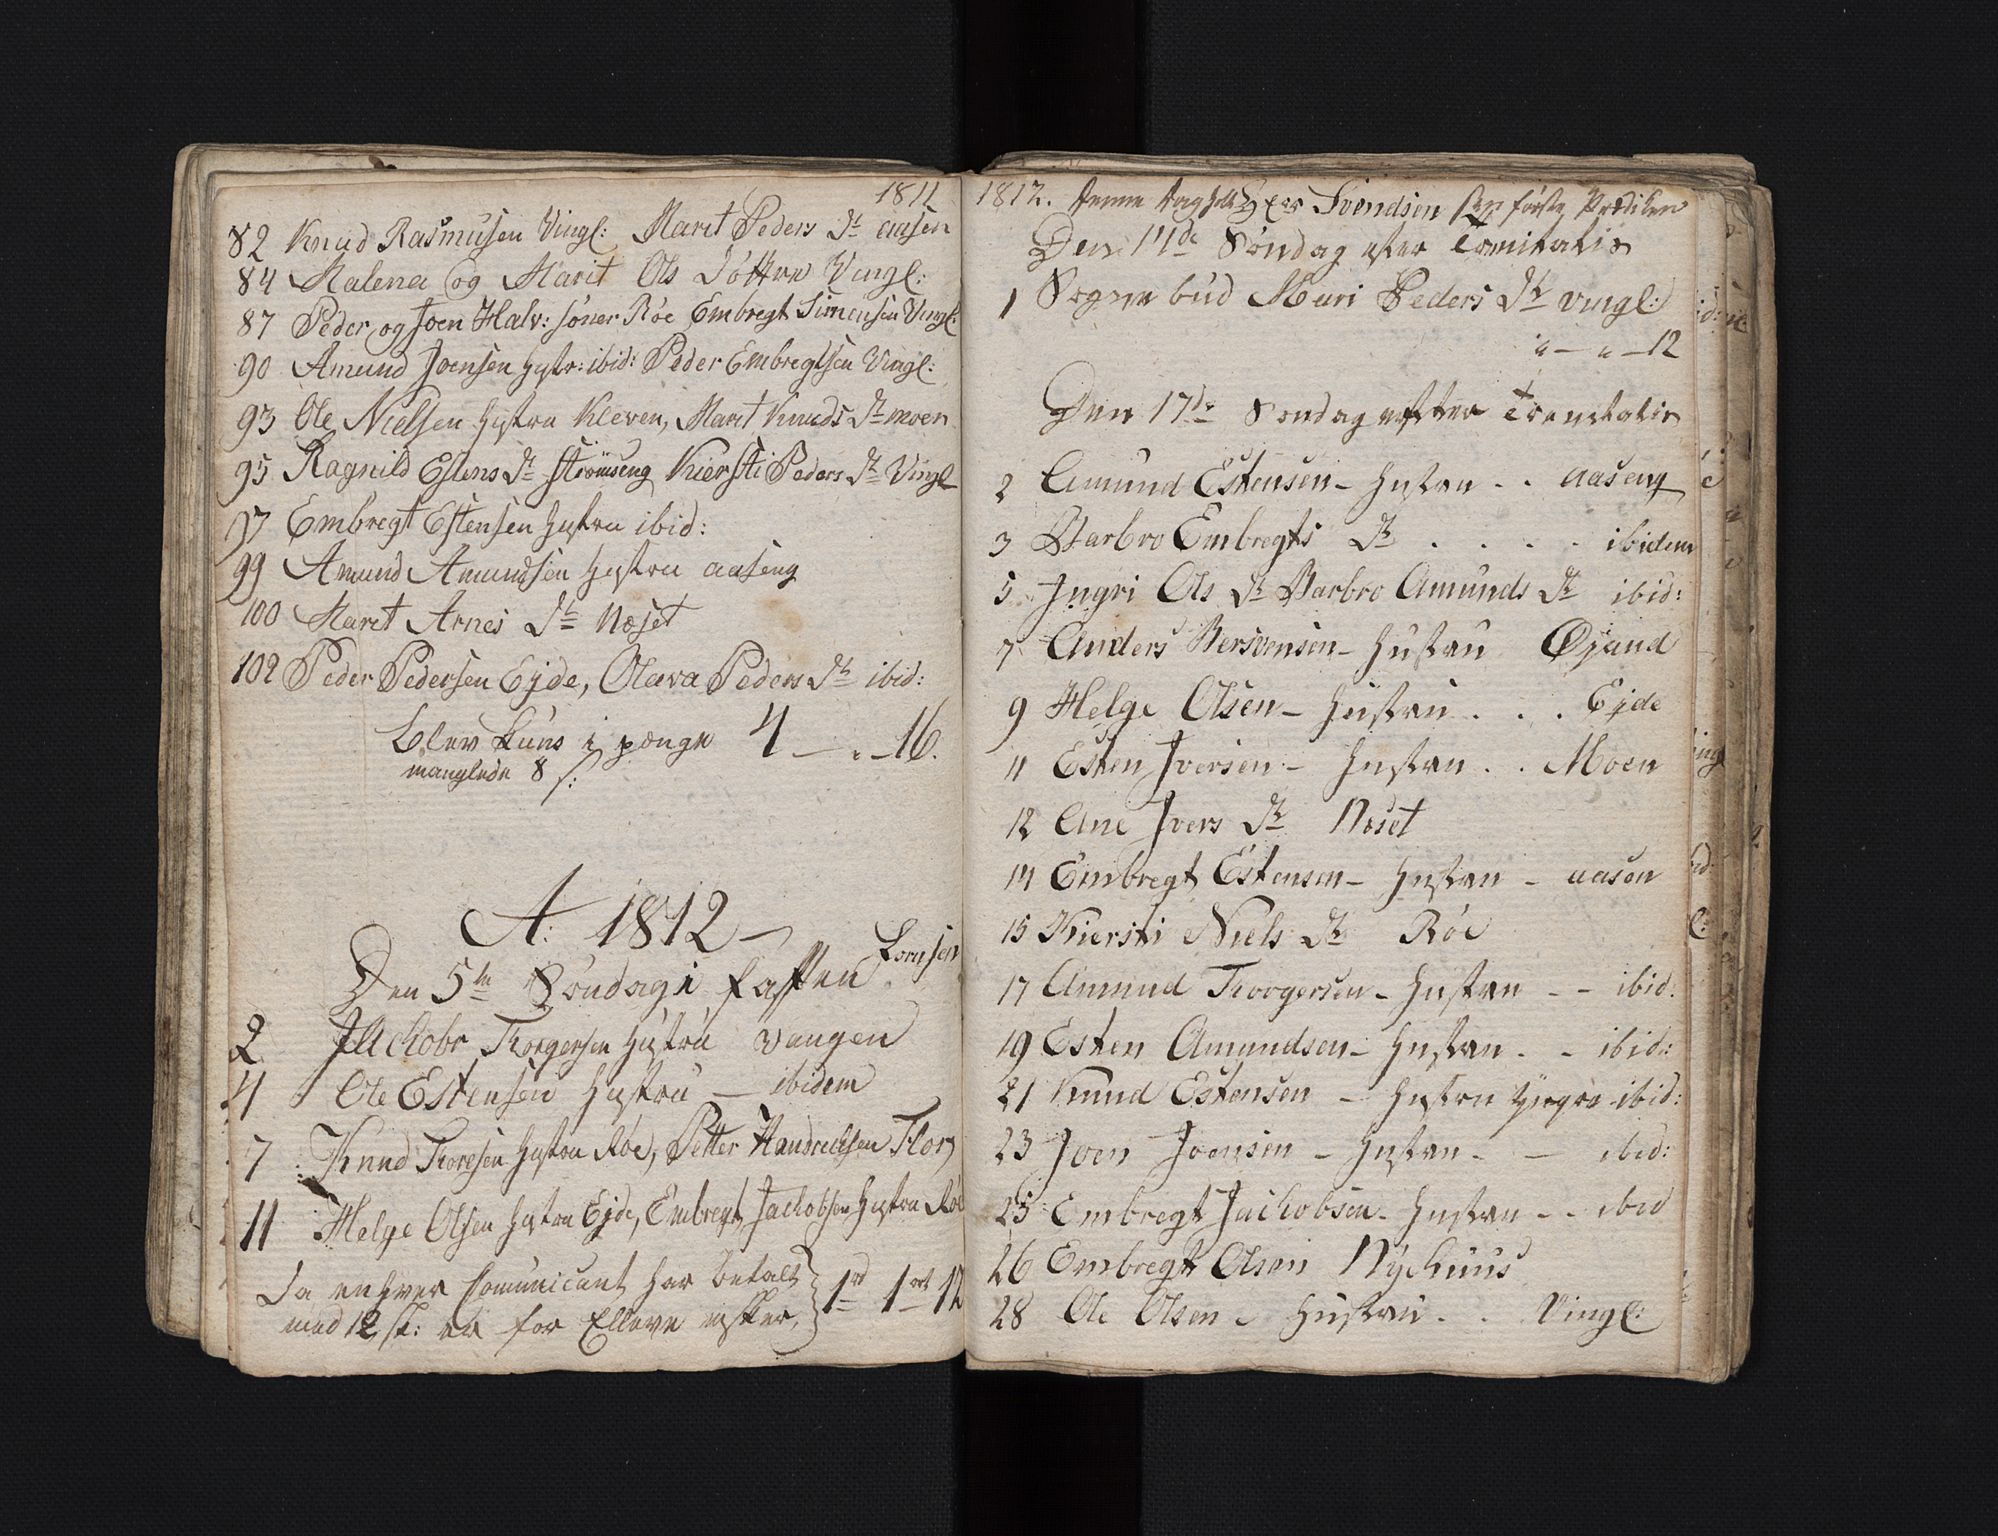 1811
82 Knud Rasmusen Vingl: Marit Peders Dt aasen
84 Malena og Marit Ols Døttre Vingl:
87 Peder og Joen Halv: sønner Røe Embregt Simensen Vingl:
90 Amund Joensen Hustr: ibid: Peder Embregtsen Vingl:
93 Ole Nielsen Hustru Kleven, Marit Knuds Dt moen
95 Ragnild Estens Dt Strömseng Kiersti Peders Dt Vingl
97 Embregt Estensen Hustru ibid:
99 Amund Amundsen Hustru aaseng
100 Marit Arnes Dt Næset
102 Peder Pedersen Ejde, Olava Peders Dt ibid:
blev kuns i penge 4 — „ — 16.
manglede 8 s:
A: 1812 —
Den 5te Søndag i Fasten
2 Jachobr Thorgersen Hustru Vangen
4 Ole Estensen Hustru — ibidem
7 Knud Thoresen Hustru Røe, Petter Handrichsen Flor
11 Helge Olsen Hustru Ejde, Embregt Jachobsen Hustru Røe
Da enhver Comunicant har betalt
med 12 sk: er for Elleve 1rd 1ort 12
1812. Denne Dag Svendsen sin første Prædiken
Den 14de Søndag efter Trenitatis
1 Sognebud Mari Peders Dt Vingl:
„ — „ — 12
Den 17de Søndag efter Trenitatis
2 Amund Estensen — Hustru . . aaseng
3 Barbro Embregts Dt . . . . ibidem
5 Jngri Ols Dt Barbro Amunds Dt ibid:
7 Anders Bersvensen — Hustru Øjand
9 Helge Olsen — Hustru . . . Ejde
11 Esten Jversen — Hustru . . Moen
12 Ane Jvers Dt Næset
14 Embregt Estensen — Hustru — aasen
15 Kiersti Niels Dt Røe
17 Amund Thorgersen — Hustru — — ibid.
19 Esten Amundsen — Hustru . — ibid:
21 Knud Estensen — Hustru yngre ibid:
23 Joen Joensen — Hustru — — ibid:
25 Embregt Jachobsen — Hustru — — ibid
26 Embregt Olsen Nÿhuus
28 Ole Olsen — Hustru . . Vingl: